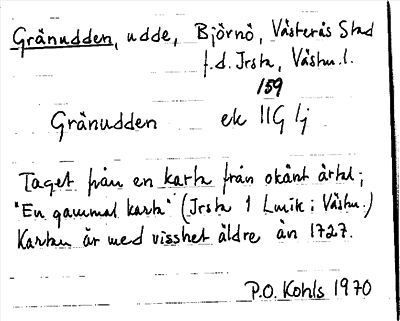 Gränudden, udde, Björnö, Västerås Stad
f.d. Irsta, Västm.l.
159
Gränudden ek 11G 1j
Taget från en karta från okänt årtal;
"En gammal karta" (Irsta 1 Lmik i Västm.)
Kartan är med visshet äldre än 1727.
P.O. Kohls 1970